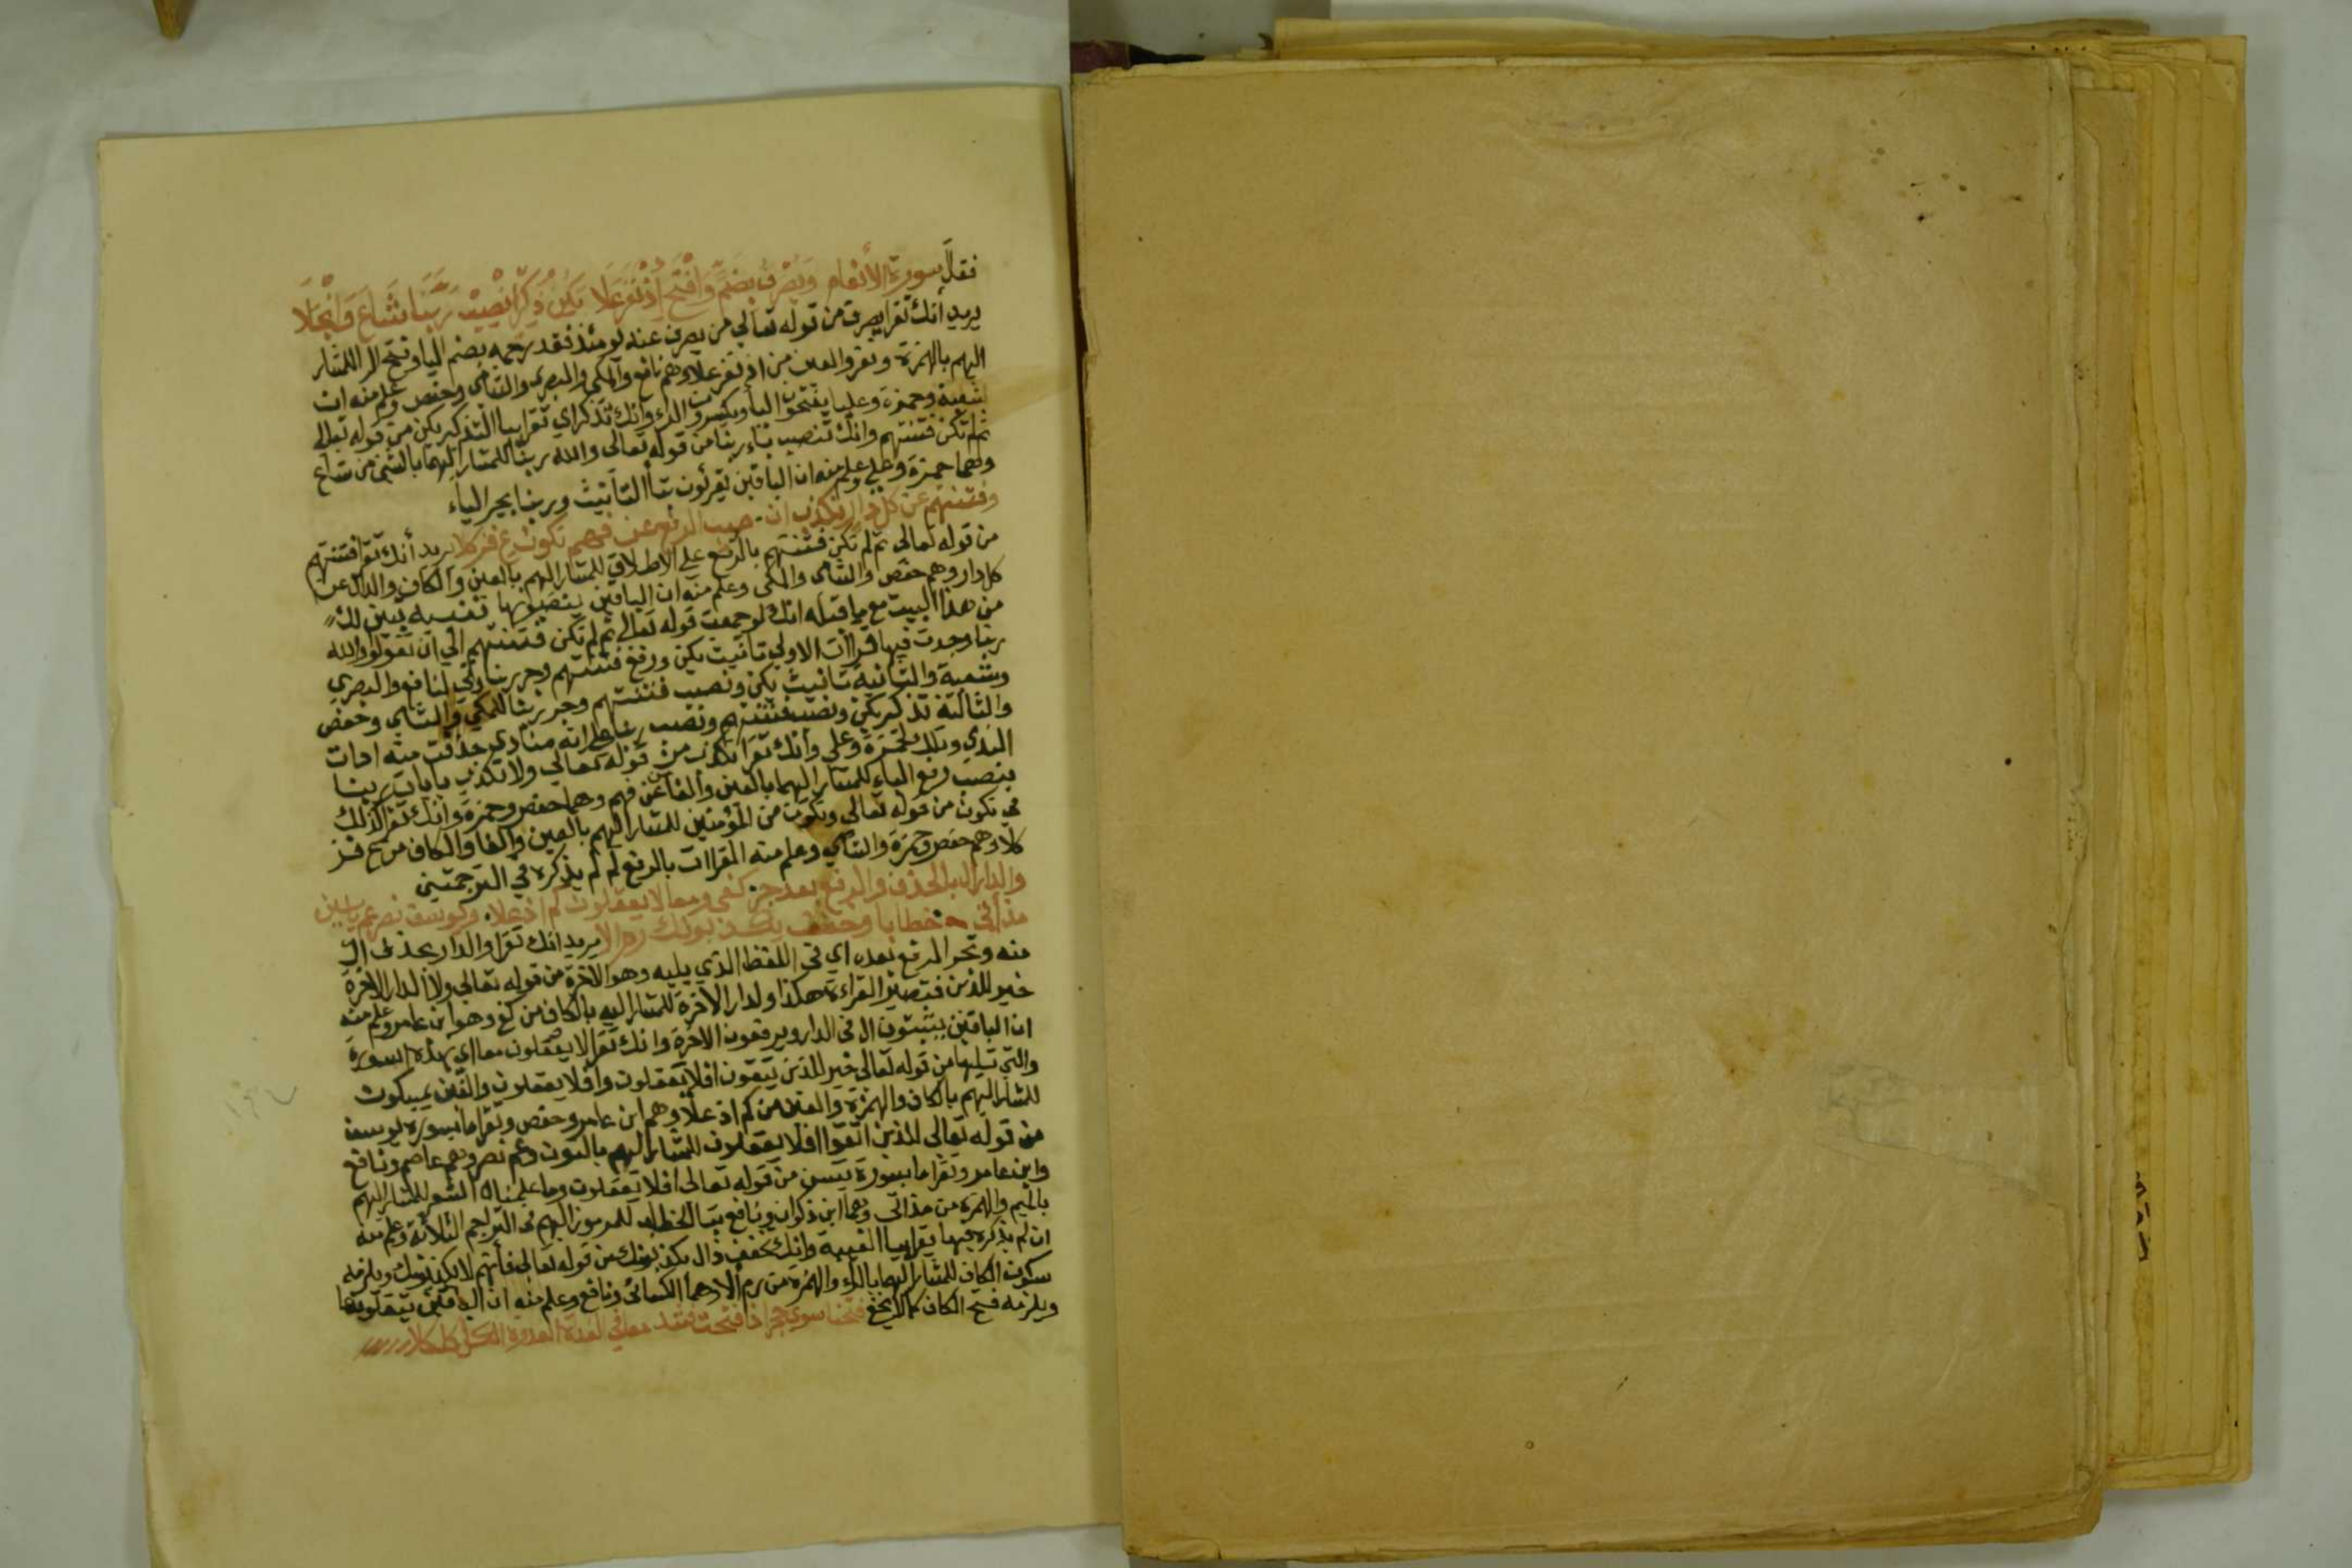 فقال سورة الأنعام ويصرف بضم وافتح إذ نفر علا يكن ذكرا نصيب ربنا شاع وانجلا
يريد أنك تقرا يصرف من قوله تعالي من يصرف عنه يومئذ فقد رحمه بضم اليا وفتح الرا للمشار
اليهم بالهمزة والعين من اذ نفر علا وهم نافع والمكي والبصري والشامي وحفص وعلم منه ان
شعبة وحمزة وعليا يفتحون اليا ويكسرون الراء وانك تذكر اي تقرا بيا التذكير يكن من قوله تعالى
ثم لم تكن فتنتهم وانك تنصب باء ربنا من قوله تعالى والله ربنا للمشار اليهما بالشين من شاع
وهما حمزة وعلي وعلم منه ان الباقين يقرئون بتا التأنيث وربنا بجر الباء
وفتنتهم عن كل دار نكذب ان نصيب الرفع عن فهم نكون ع فز كلا يريد أنك تقرا فتنتهم
من قوله تعالى ثم لم تكن فتنتهم بالرفع على الاطلاق للمشار اليهم بالعين والكاف والدال عن
كل دار وهم حفص والشامي والمكي وعلم منه ان الباقين ينصبونها تنبيه تبين لك
من هذا البيت مع ما قبله انك لو جمعت قوله تعالى ثم لم تكن فتنتهم الي ان تقولوا والله
ربنا وجدت فيها قراات الاولي تانيث يكن ورفع فتنتهم وجر ربنا وهي لنافع والبصري
وشعبة والثانية تانيث يكن ونصب فتنتهم وجر ربنا للمكي والشامي وحفص
والثالثة تذكير يكن ونصب فتنتهم ونصب ربنا على انه منادي حذفت منه ادات
الندي وذلك لحمزة وعلي وأنك تقرا نكذب من قوله تعالي ولا نكذب بايات ربنا
بنصب رفع الباء للمشار اليهما بالعين والفا عن فهم وهما حفص وحمزة وانك تقرا كذلك
في نكون من قوله تعالى ونكون من المؤمنين للمشار اليهم بالعين والفا والكاف من ع فز
كلا وهم حفص وحمزة والشامي وعلم منه القراات بالرفع لم لم يذكره في الترجمتين
والدار ال بالحذف والرفع بعد جز كفى ومعا لا يعقلون كم اذ علا وليوسف نصر عم ياسين
مذ أتى خطابا وخفف يكذبونك رم الا يريد انك تقرا والدار بحذف ال
منه وتجر الرفع بعده اي في اللفظ الذي يليه وهو الاخرة من قوله تعالى وللدار الاخرة
خير للذين فتصير القراءة هكذا ولدار الاخرة للمشار اليه بالكاف من كفى وهو ابن عامر وعلم منه
ان الباقين يثبتون ال في الدار ويرفعون الاخرة وانك تقرا لا يعقلون معا اي بهذه السورة
والتي تليها من قوله تعالى خير للذين يتقون افلا تعقلون وافلا يعقلون والذين يمسكون
للمشار اليهم بالكاف والهمزة والعين من كم اذ علا وهم ابن عامر وحفص وتقرا ما بسورة يوسف
من قوله تعالى للذين اتقوا افلا يعقلون للمشار اليهم بالنون وعم نصر وهم عاصم ونافع
وابن عامر وتقرا ما بسورة يسن من قوله تعالى افلا يعقلون وما علمناه الشعر للمشار اليهم
بالميم والهمزة من مذ اتى وهما ابن ذكوان ونافع بتا الخطاب للمرموز اليهم في التراجم الثلاثة وعلم منه
ان لم يذكره فيها يقرا بيا الغيبة وانك تخفف ذال يكذبونك من قوله تعالى فانهم لا يكذبونك ويلزمه
سكون الكاف للمشار اليهما بالراء والهمزة من رم ألا وهما الكسائي ونافع وعلم منه ان الباقين يثقلونها
ويلزمه فتح الكاف كما لا يخفى فتحنا سوى حجر اذا فتحت فشد معا في الغداة الغدوة الكل كل كلا